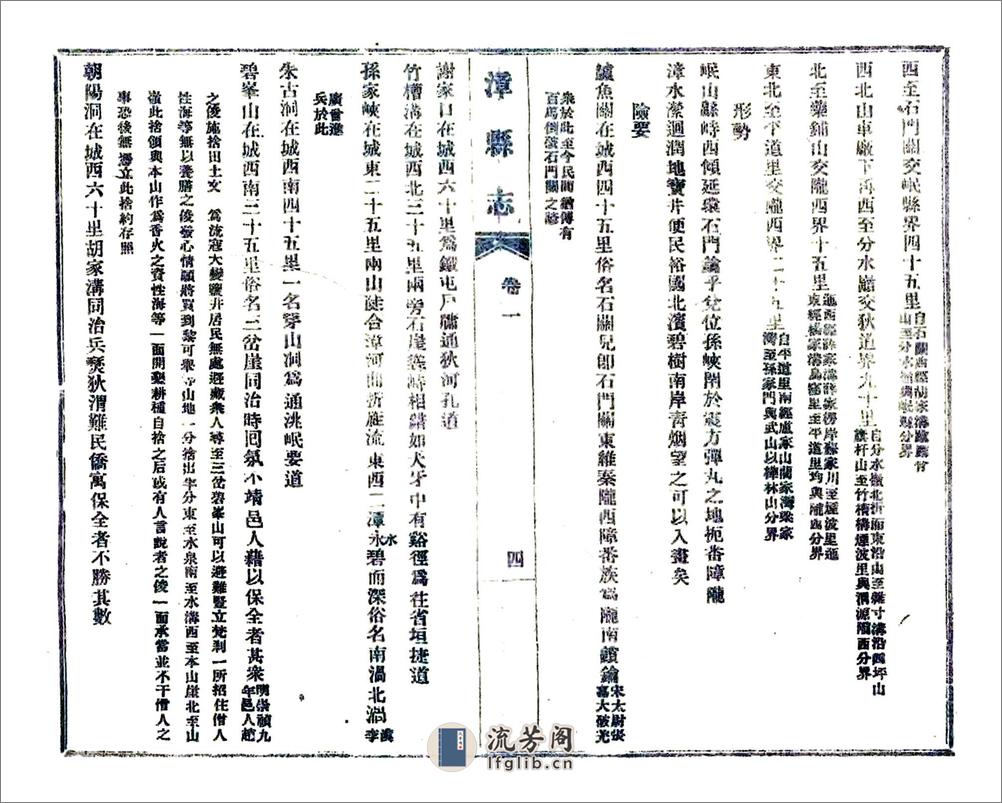 西至石門關交岷縣界四十五里自石關西經胡家溝
山至分水嶺與岷縣分界
西北山車廠下再西至分水嶺交狄道界九十里自分水嶺北折而東沿山至雞寸溝沿鴨坪山
旗杆山至竹積構煙波里與渭源隴西分界
北至藥鋪山交隴西界十五里
東經楊家溝烏龍里至平道里均與隴西分界
東北至平道里交隴西界二十五里自平道里南經盧家山藺家灣梁家
灣至孫家門與武山以樺林山分界
形勢
岷山縣峙西傾延袤石門論乎兌位孫峽閉於震方彈丸之地扼番障隴
漳水瀠迴潤地寶井便民裕國北濱碧樹南岸青烟望之可以入畫矣
險要
鱸魚關在城西四十五里俗名石關兒卽石門關東維秦隴西障番族為隴南鎖鑰宋太尉張
嘉大破兀
朮於此至今民間猶傳有
百萬倒發石門關之諺
漳縣志
卷一
四
謝家口在城西六十里為鐵屯戶蕭通狄河孔道
竹槽溝在城西北三十五里兩旁石崖裝峙相錯如犬牙中有谿徑為往省垣捷道
孫家峽在城東二十五里兩山陡合漳河曲折旋流東西二潭水碧而深俗名南渦北淵漢
李
廣曾進
兵於此
朱古洞在城西南四十五里一名穿山洞為通洮岷要道
碧峯山在城西南三十五里俗名三岔崖同治時囘氛不靖邑人藉以保全者甚衆明崇禎九
年邑人趙
之俊施捨田土文 為流寇大變鹽井居民無處避藏衆人尋至三岔碧峯山可以避難豎立梵刹一所招住僧人
性海等無以養膳之俊發心情願將買到黎可舉寺山地一分捨出半分東至水泉南至水溝西至本山崖北至山
嶺此捨頒與本山作為香火之資性海等一面開墾耕種自捨之后或有人言說者之俊一面承當並不干僧人之
事恐後無憑立此捨約存照
朝陽洞在城西六十里胡家溝同治兵燹狄渭難民僑寓保全者不勝其數
流芳阁
lfglib.cn